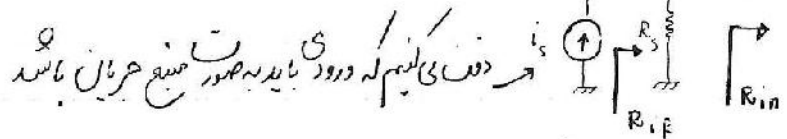 دقت می‌کنیم که ورودی باید به صورت منبع جریان باشد
i_s
R_s
R_if
R_in